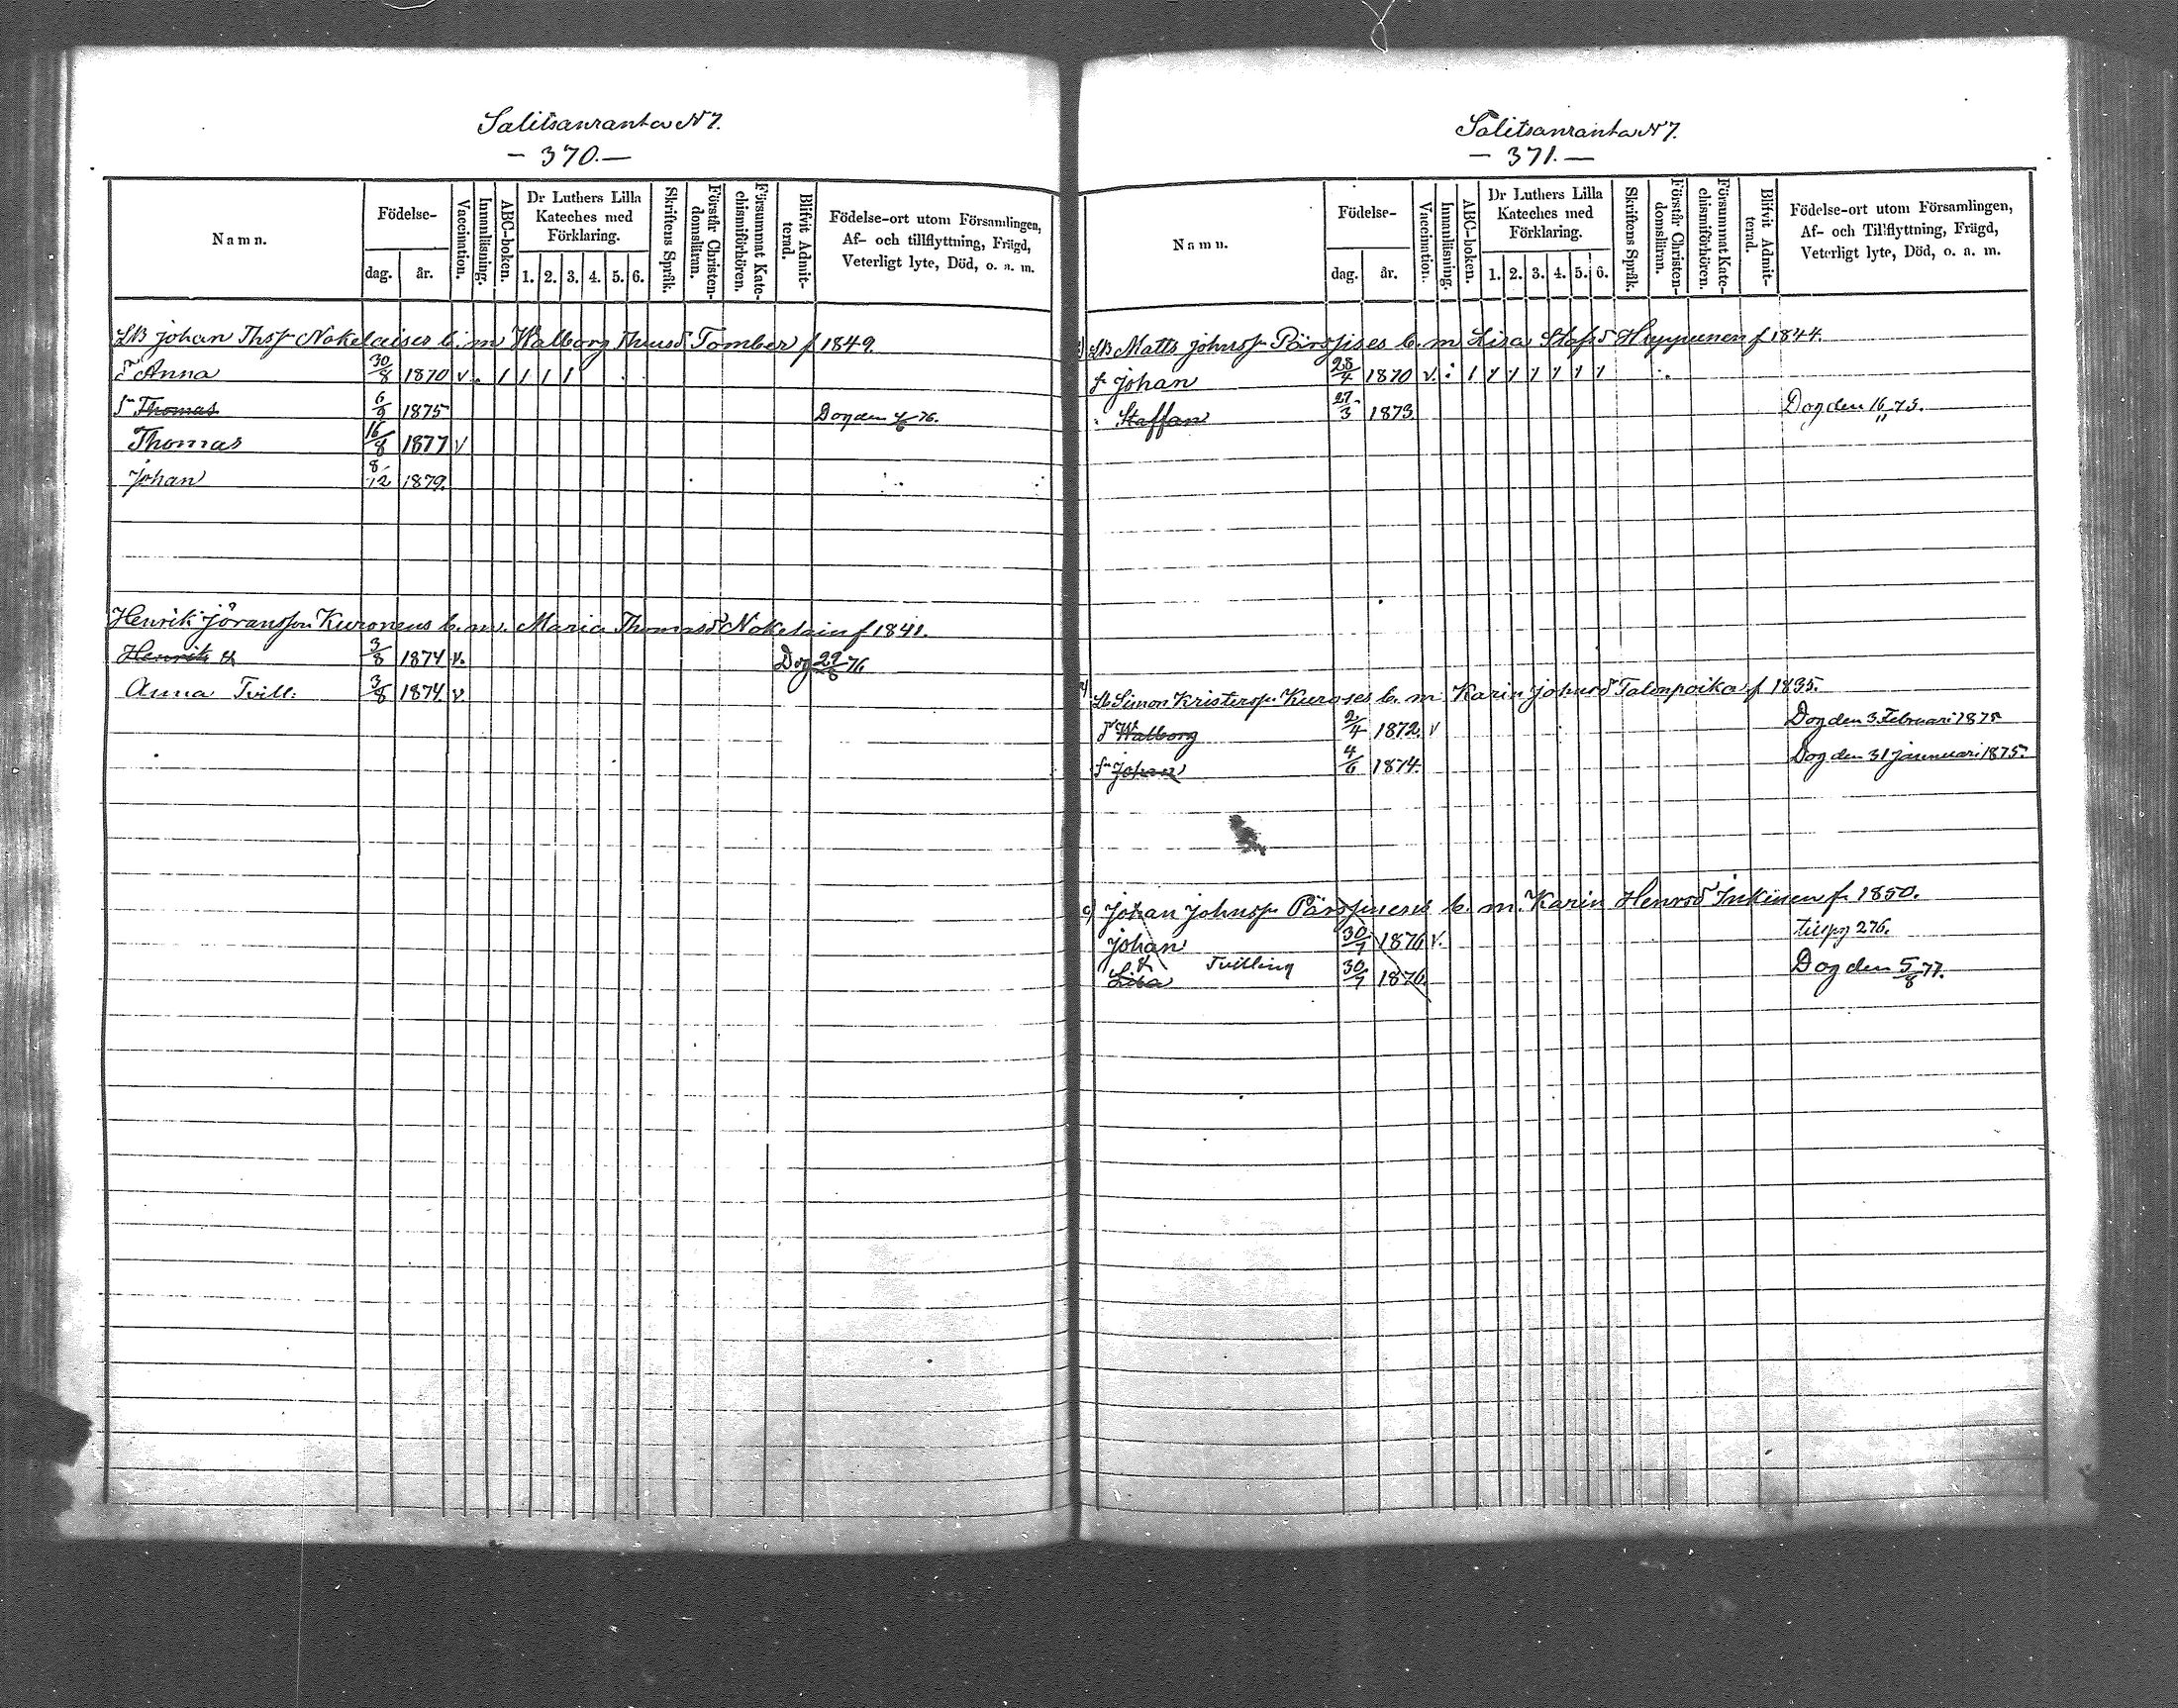 Salitsanranta N 7.
— 370. —
Namn.
Födelse-
dag.
år.
Vaccination.
Innanläsning.
ABC-boken.
Dr Luthers Lilla Kateches med Förklaring.
1. 2. 3. 4. 5. 6.
Skriftens Språk.
Förstår Christendomsläran.
Försummat Katechismiförhören.
Blifvit Admitterad.
Födelse-ort utom Församlingen,
Af- och tillflyttning, Frägd,
Veterligt lyte, Död, o. a. m.
Johan Nokelaises b. m. Walborg Tomber f 1849.
dr Anna 30/8 1870 v
Sn Thomas 6/9 1875 Dog den 76.
Thomas 16/8 1877 v
Johan 8/12 1879.
Henrik Göransson Kuronens b. m. Maria Thomasd Nokelain f 1841.
Henrik & 3/8 1874 v. Dog 29/8 76
Anna Tvill. 3/8 1874. v.
Salitsanranta N 7.
— 371. —
Namn.
Födelse-
dag.
år.
Vaccination.
Innanläsning.
ABC-boken.
Dr Luthers Lilla Kateches med Förklaring.
1. 2. 3. 4. 5. 6.
Skriftens Språk.
Förstår Christendomsläran.
Försummat Katechismiförhören.
Blifvit Admitterad.
Födelse-ort utom Församlingen,
Af- och Tillflyttning, Frägd,
Veterligt lyte, Död, o. a. m.
Matts Johnsp b. m. Lisa Stafsd Hyppönen f 1844.
Johan 28/4 1870 v.
Staffan 27/3 1873. Dog den 16/11 75.
Simon Kristersp. Kuroses b. m. Karin Johnsd Talonpoika f. 1835.
d Walborg 2/4 1872. v Dog den 3 Februari 1875
Sn Johan 4/6 1874. Dog den 31 Januari 1875.
c) Johan Johnsp. b. m. Karin Henrsd Inkinen f. 1850.
Johan 30/7 1876 v. 276.
& Tvilling
Lisa 30/7 1876. Dog den 5/8 77.